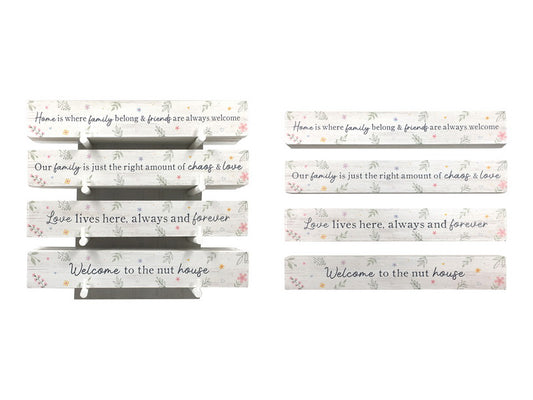 Home is where family belong & friends are always welcome
Our family is just the right amount of chaos & love
Love lives here, always and forever
Welcome to the nut house
Home is where family belong & friends are always welcome
Our family is just the right amount of chaos & love
Love lives here, always and forever
Welcome to the nut house